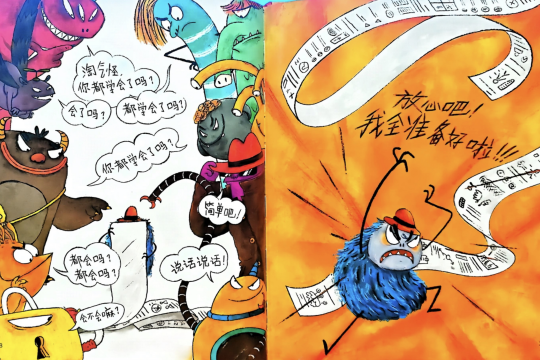 淘气怪,
你都学会了吗?
会了吗?
都学会了吗?
你都学会了吗?
简单吧!
都会吗?
都会吗?
说话说话!
会不会嘛?
放心吧!
我全准备好啦!!!